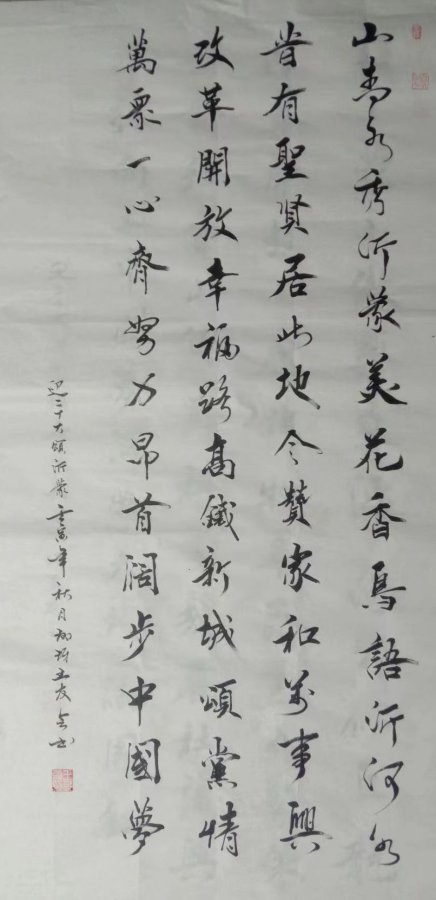 山青水秀沂蒙美花香鳥語沂河水
昔有聖賢居此地今贊家和万事興
改革開放幸福路高鐵新城頌黨情
萬眾一心齊努力昂首闊步中國夢
迎二十大頌沂蒙壬寅年秋月